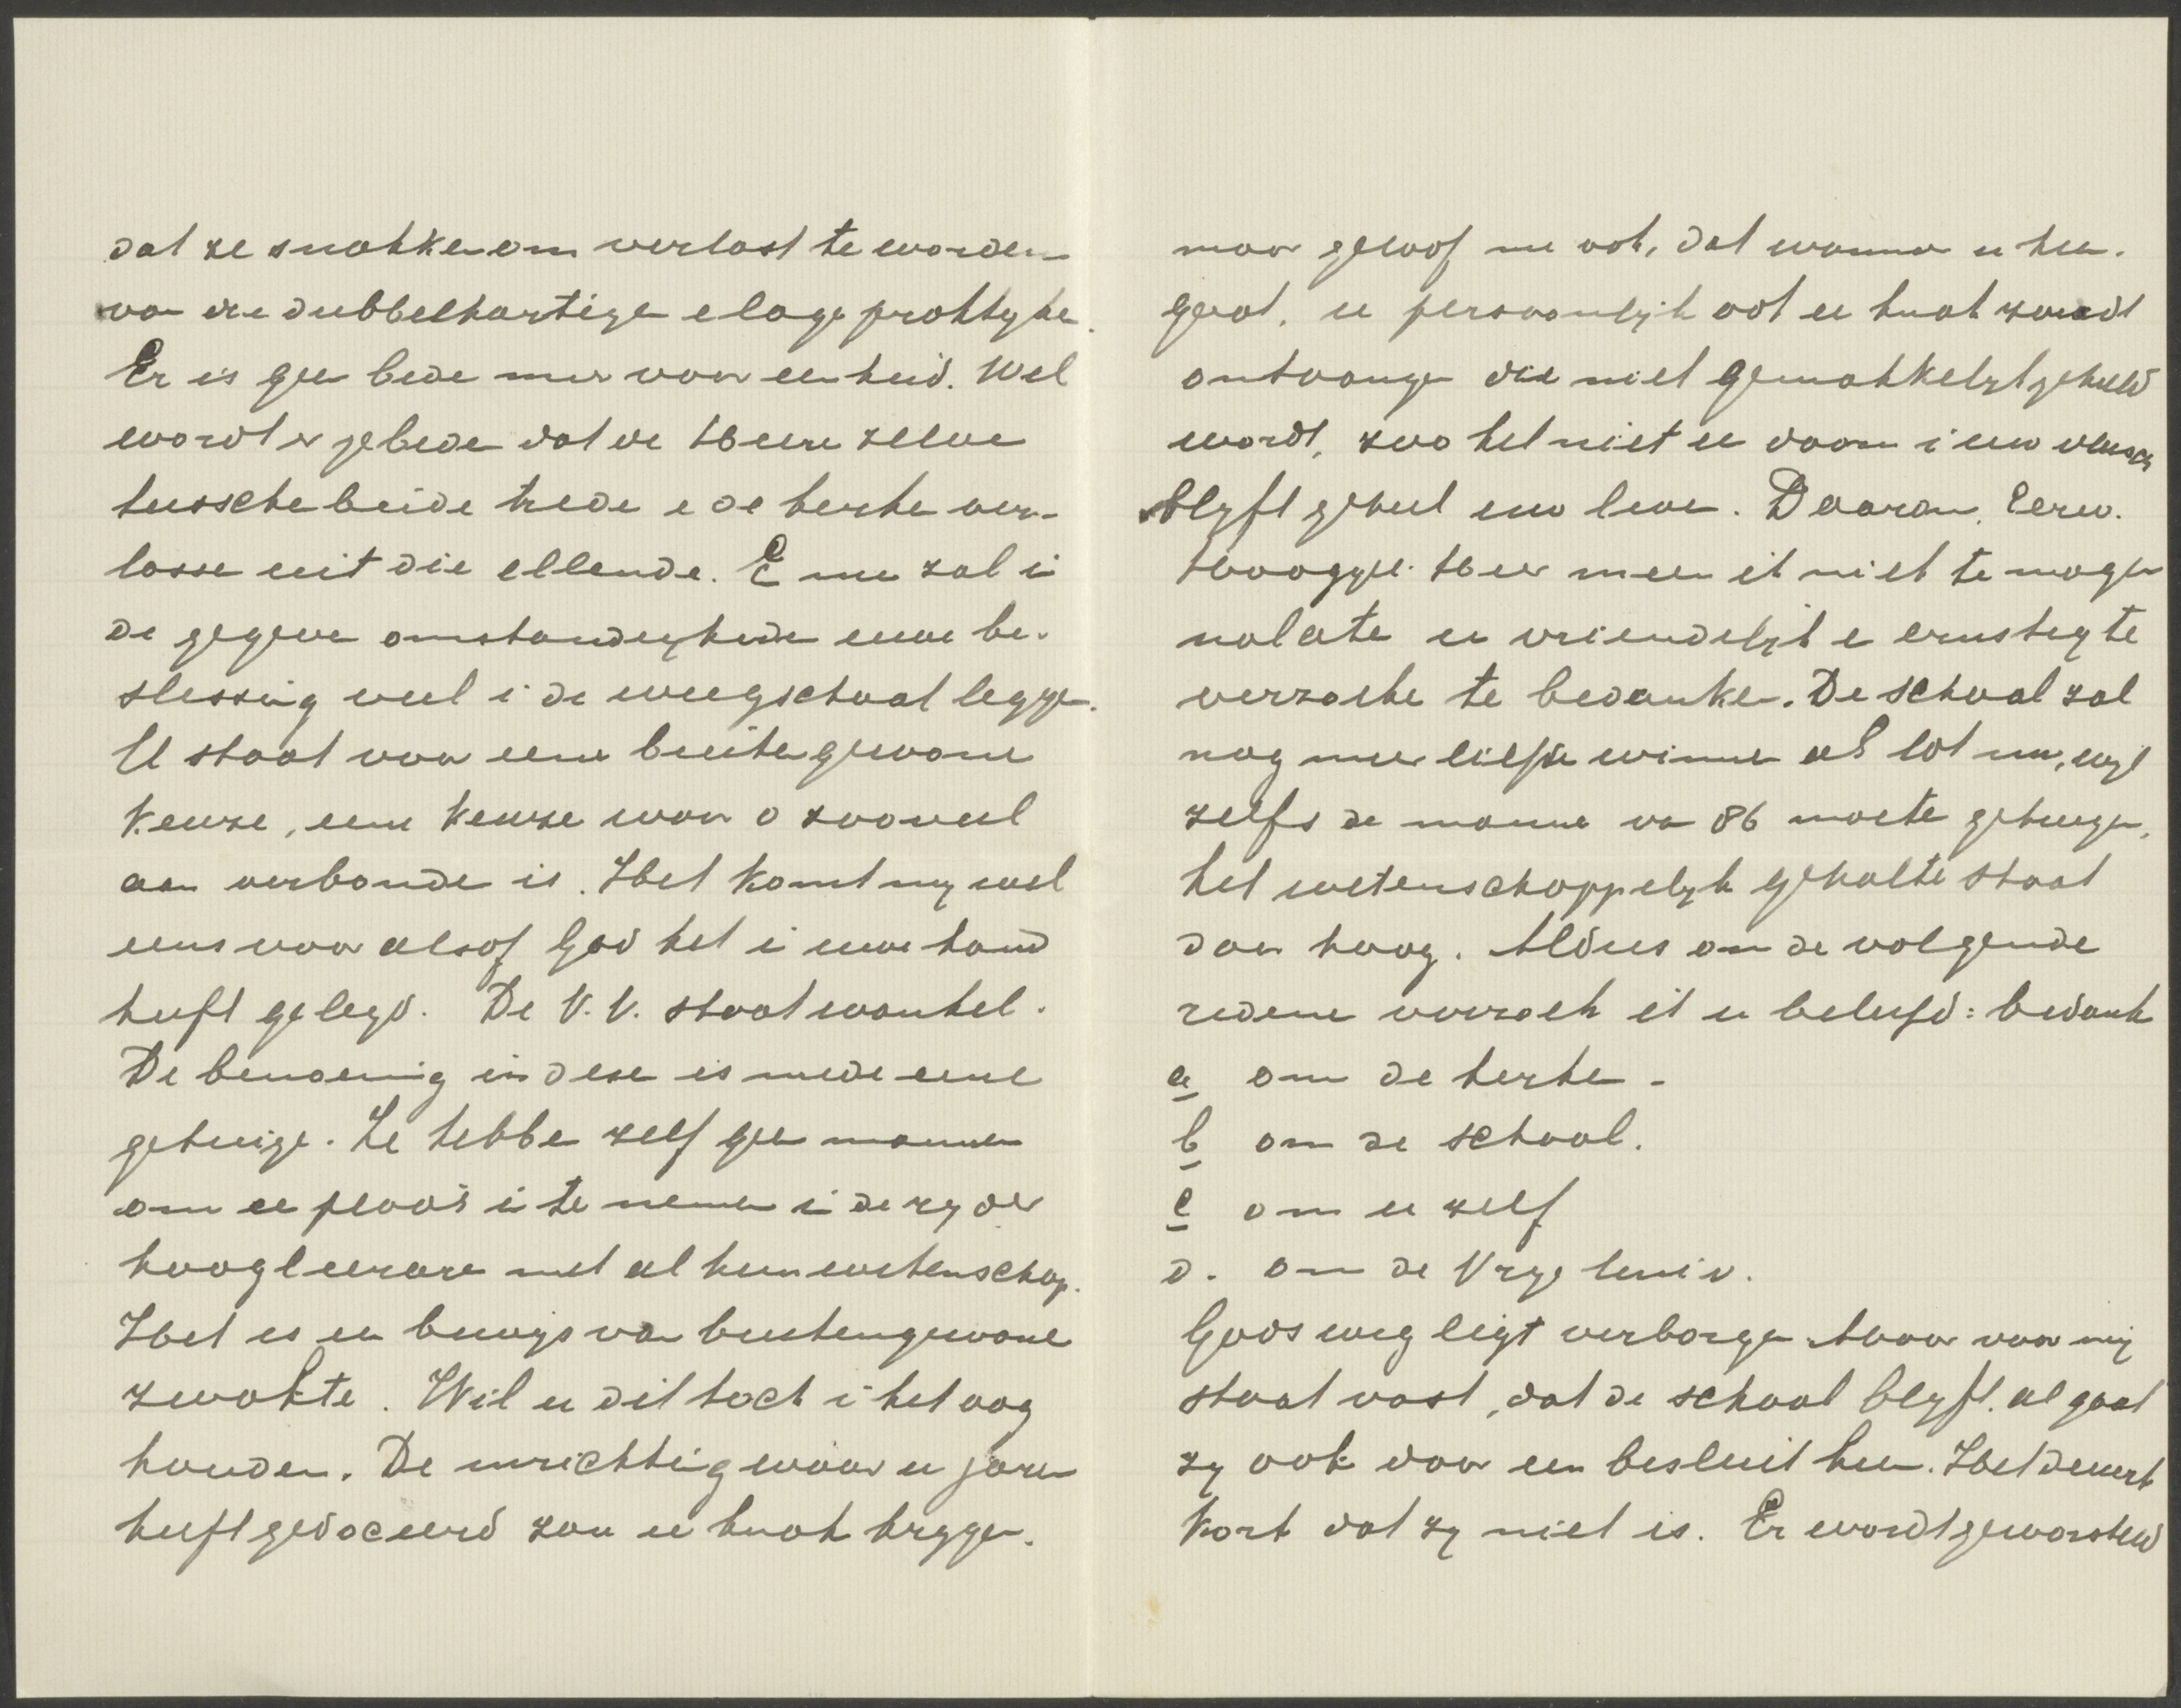 dat ze snakken om verlost te worden
van die dubbelhartige e lage praktyke.
Er is gee bede meer voor eenheid. Wel
wordt er gebede dat de Heere zelve
tussche beide trede e de kerke ver-
losse uit die ellende. E nu zal i
de gegeve omstandigheden uwe be-
slissing veel i de weegschaal legge.
U staat voor eene buitengewone
keuze, eene keuze waar o zooveel
aan verbonde is. Het komt my wel
eens voor alsof God het i uwe hand
heeft gelegd. De V.V. staat wankel.
De benoeming in deze is mede eene
getuige. Ze hebbe zelf gee mannen
om ee plaats i te nemen i de ry der
hoogleerare met al hun wetenschap.
Het is een bewys van buitengewone
zwakte. Wil u dit toch i het oog
houden. De inrichting waar u jaren
heeft gedoceerd zou ee knak krygen.
maar geloof me ook, dat wanneer u hee-
gaat, u persoonlyk ook ee knak zoudt
ontvange die niet gemakkelyk geheeld
wordt, zoo het niet ee doorn i uw vleesch
blyft geheel uw leve. Daarom, Eerw.
Hooggel. Heer meen ik niet te mogen
nalate u vriendelyk e ernstig te
verzoeke te bedanken. De school zal
nog meer liefde winne als tot nu, wyl
zelfs de manne va 86 moete getuigen,
het wetenschappelyk gehalte staat
daar hoog. Aldus om de volgende
redene verzoek ik u beleefd: bedank
a om de kerke -
b om de school.
c om u zelf
d. om de Vrye Univ.
Gods weg ligt verborge. Maar voor my
staat vast, dat de school blyft. al gaat
zy ook door een besluit heen. Het duurt
kort dat zy niet is. Er wordt geworsteld